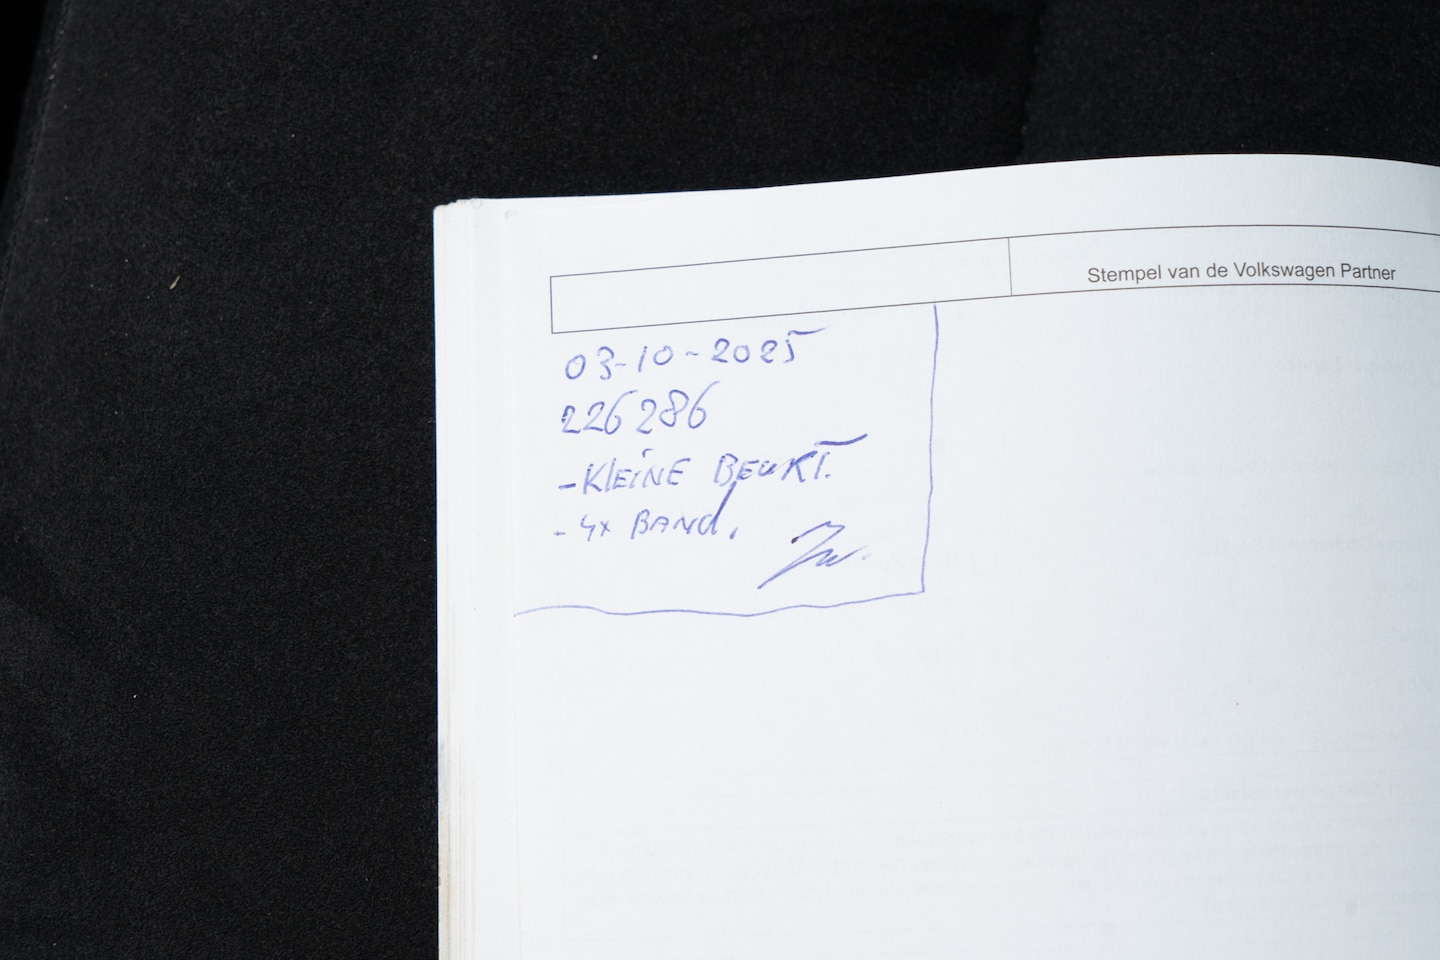 Stempel van de Volkswagen Partner
03-10-2025
226286
-KLEINE BEURT.
-4x BAND.